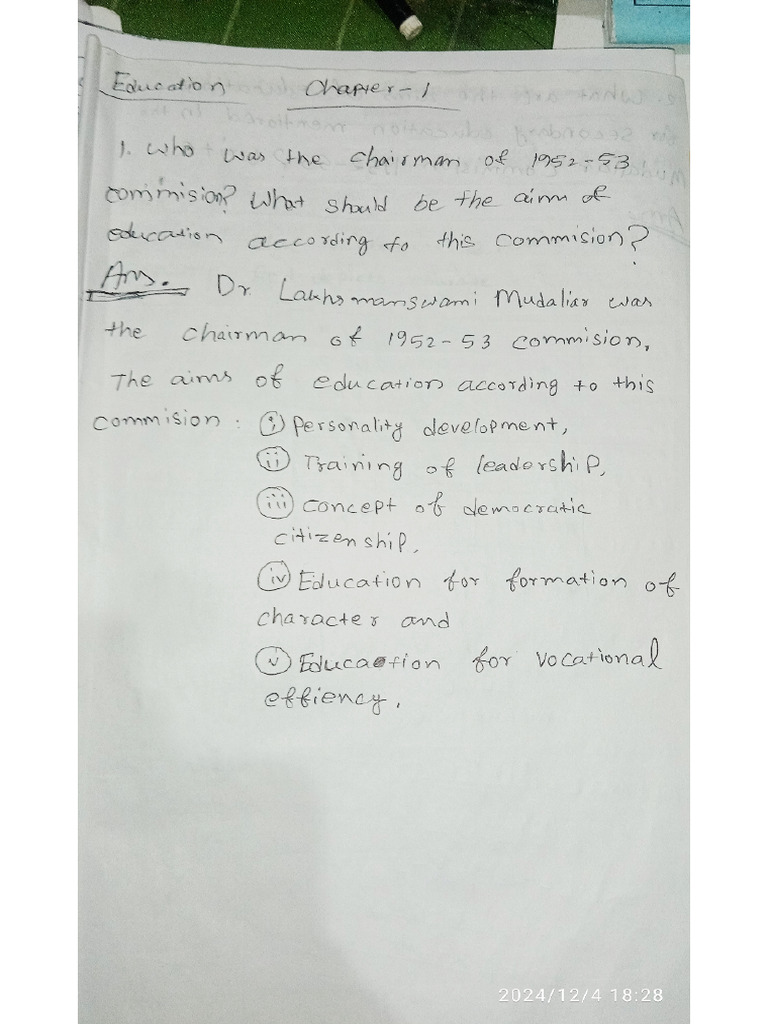 Education Chapter-1
1. Who was the chairman of 1952-53
commision? What should be the aim of
education according to this commision?
Ans. Dr. Lakhsmanswami Mudaliar was
the chairman of 1952-53 commision,
The aims of education according to this
commision: (i) Personality development,
(ii) Training of leadership,
(iii) concept of democratic
citizenship,
(iv) Education for formation of
character and
(v) Education for vocational
effiency,
2024/12/4 18:28